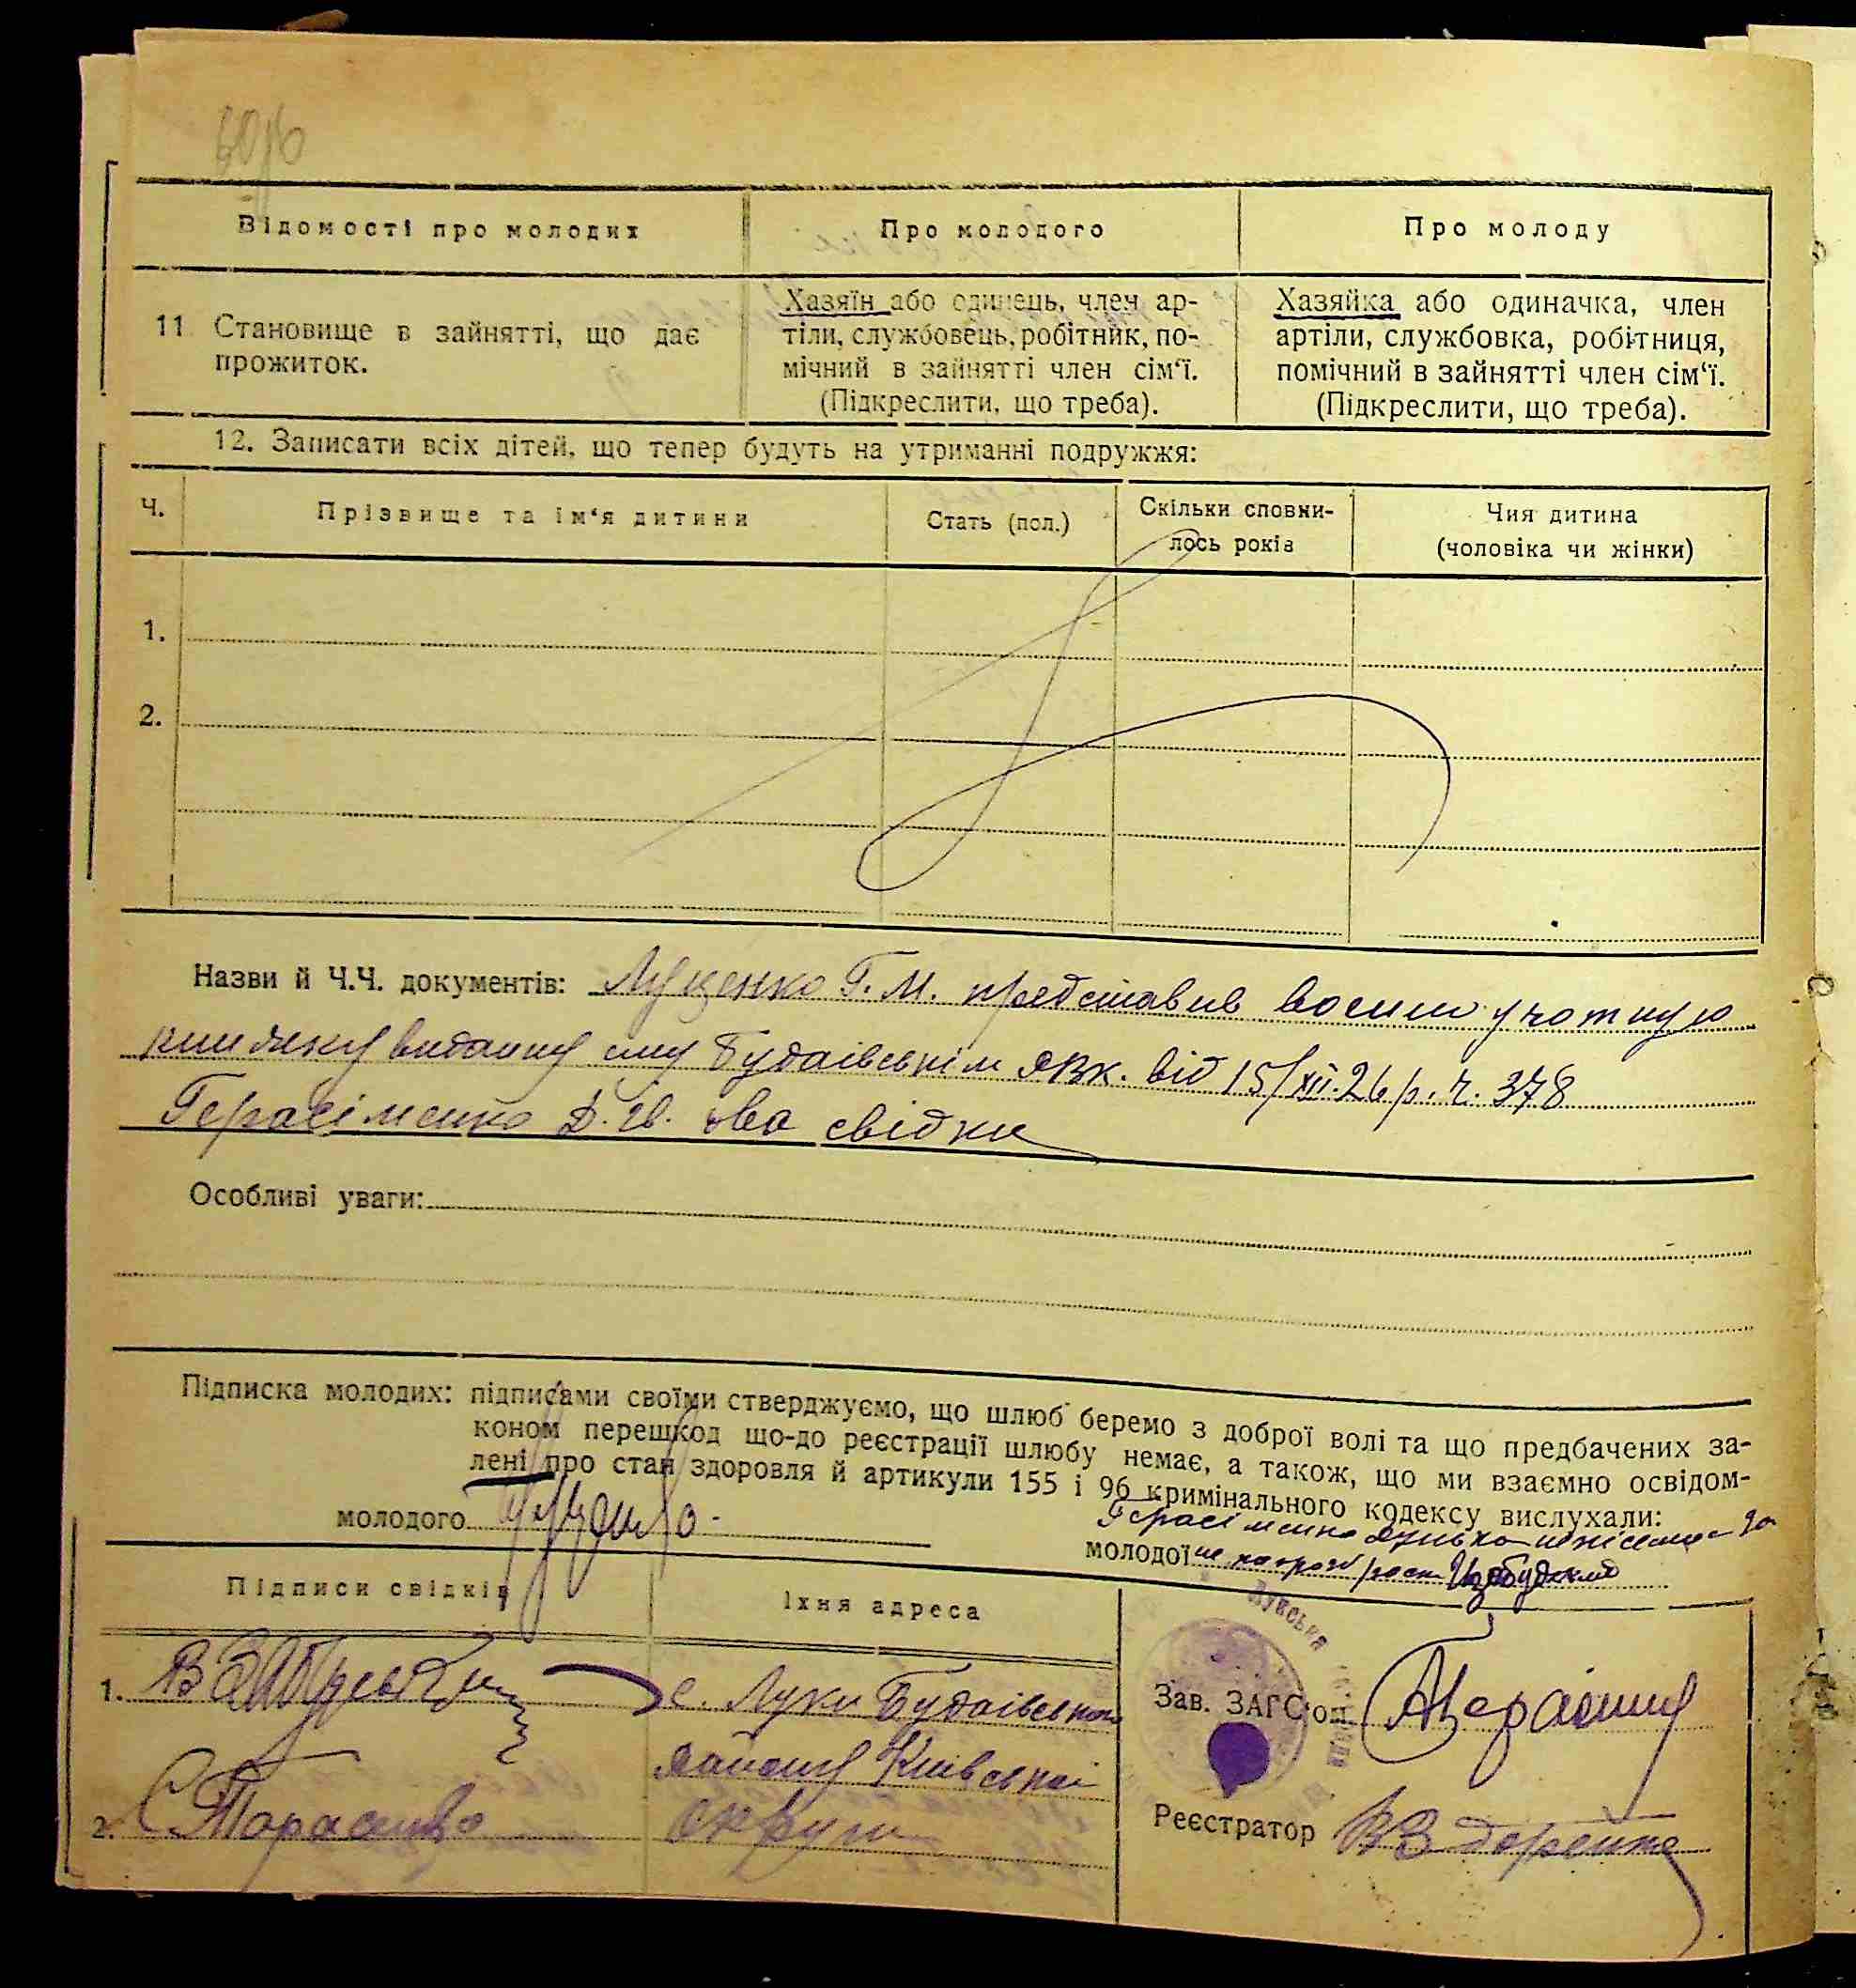 Відомості про молодих
Про молодого
Про молоду
11 Становище в зайнятті, що дає
прожиток.
Хазяїн або одинець, член ар-
тіли, службовець, робітник, по-
мічний в зайнятті член сім‘ї.
(Підкреслити, що треба).
Хазяйка або одиначка, член
артіли, службовка, робітниця,
помічний в зайнятті член сім‘ї.
(Підкреслити, що треба).
12. Записати всіх дітей, що тепер будуть на утриманні подружжя:
Ч.
Прізвище та ім‘я дитини
Стать (пол.)
Скільки сповни-
лось років
Чия дитина
(чоловіка чи жінки)
1.
2.
Назви й Ч.Ч. документів: Луценко Г. М. представив воєнно учотную
книжку видану ему Будаівським РВК. від 15/XII-26 р. ч. 378
Герасіменко два свідки
Особливі уваги:
Підписка молодих: підписами своїми стверджуємо, що шлюб беремо з доброї волі та що предбачених за-
коном перешкод що-до реєстрації шлюбу немає, а також, що ми взаємно освідом-
лені про стан здоровля й артикули 155 і 96 кримінального кодексу вислухали:
молодого
Герасіменко
молодої
Підписи свідків
Їхня адреса
1.
с. Луки Будаівського
району Київської
2. С Тарасенко
округи
Зав. ЗАГС‘ом
Реєстратор